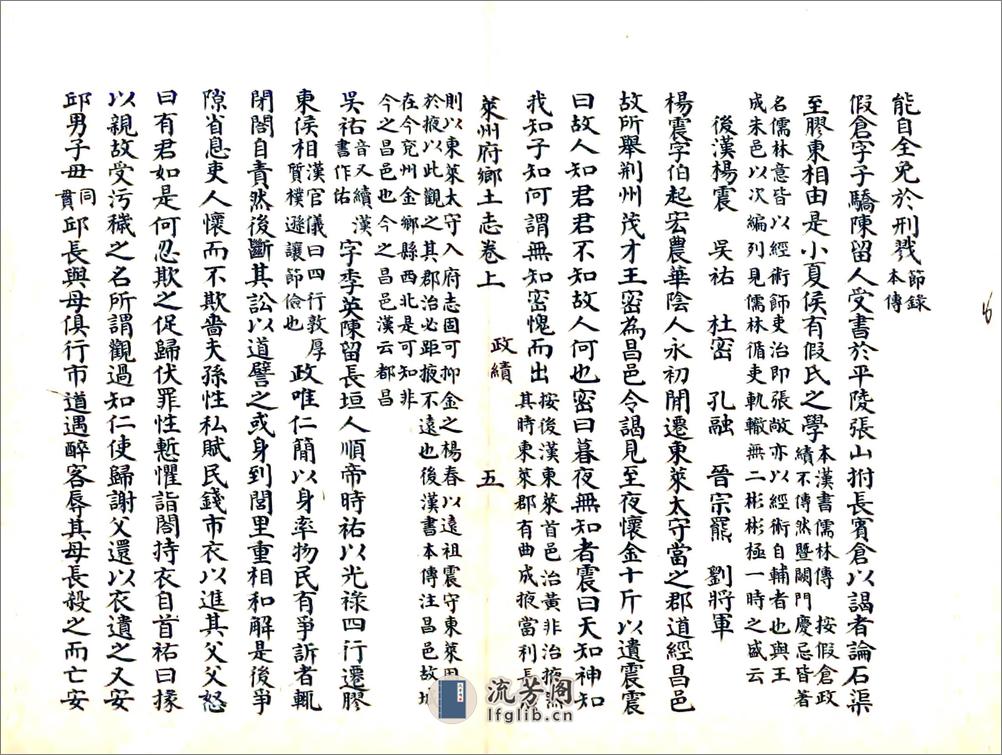 能自全免於刑戮節錄本傳
假倉字子驕陳留人受書於平陵張山拊長賓倉以謁者論石渠
至膠東相由是小夏侯有假氏之學本漢書儒林傳 按假倉政績不傳然暨闕門慶忌皆著
名儒林意皆以經術師吏治即張敞亦以經術自輔者也與王
成朱邑以次編列見儒林循吏軌轍無二彬彬極一時之盛云
後漢楊震 吳祐 杜密 孔融 晉宗羆 劉將軍
楊震字伯起宏農華陰人永初開遷東萊太守當之郡道經昌邑
故所舉荆州茂才王密為昌邑令謁見至夜懷金十斤以遺震震
曰故人知君君不知故人何也密曰暮夜無知者震曰天知神知
我知子知何謂無知密愧而出按後漢東萊首邑治黃非治掖
其時東萊郡有曲成掖當利長
萊州府鄉土志卷上 政績 五
則以東萊太守入府志固可抑金之楊春以遠祖震守東萊
於掖以此觀之其郡治必距掖不遠也後漢書本傳注昌邑故
在今兖州金鄉縣西北是可知非
今之昌邑也今之昌邑漢云都昌
吳祐音又續漢書作佑字季英陳留長垣人順帝時祐以光祿四行遷膠
東侯相漢官儀曰四行敦厚質樸遜讓節儉也政唯仁簡以身率物民有爭訴者輒
閉閤自責然後斷其訟以道譬之或身到閭里重相和解是後爭
隙省息吏人懷而不欺嗇夫孫性私賦民錢市衣以進其父父怒
曰有君如是何忍欺之促歸伏罪性慙懼詣閤持衣自首祐曰掾
以親故受污穢之名所謂觀過知仁使歸謝父還以衣遺之又安
邱男子毋同貫邱長與母俱行市道遇醉客辱其母長殺之而亡安
流芳閣
lfglib.cn